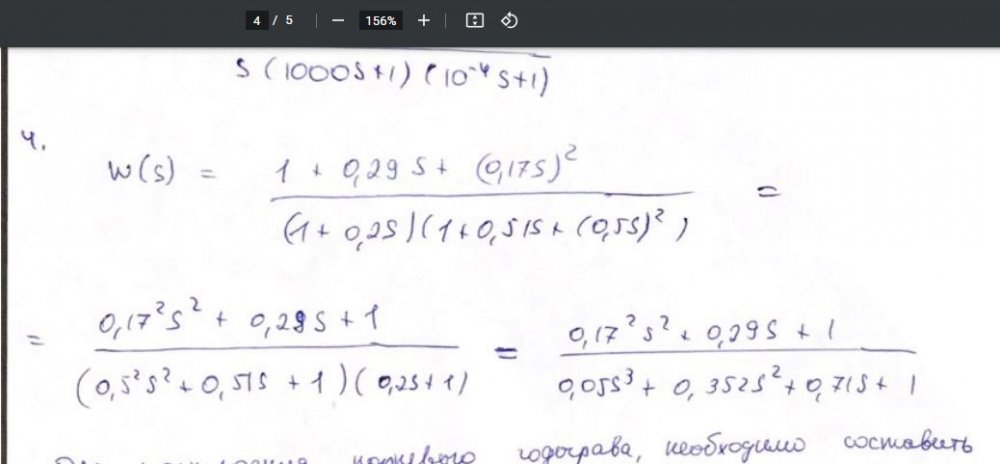 4 / 5 — 156% +
S (1000S+1) (10⁻⁴ S+1)
4.
W(s) = 1 + 0,29 S + (0,17S)² / (1 + 0,2S)(1 + 0,51S + (0,5S)²) =
= 0,17²S² + 0,29S + 1 / (0,5²S² + 0,51S + 1)(0,2S+1) = 0,17²S² + 0,29S + 1 / 0,05S³ + 0,352S² + 0,71S + 1
годографа, необходимо составить